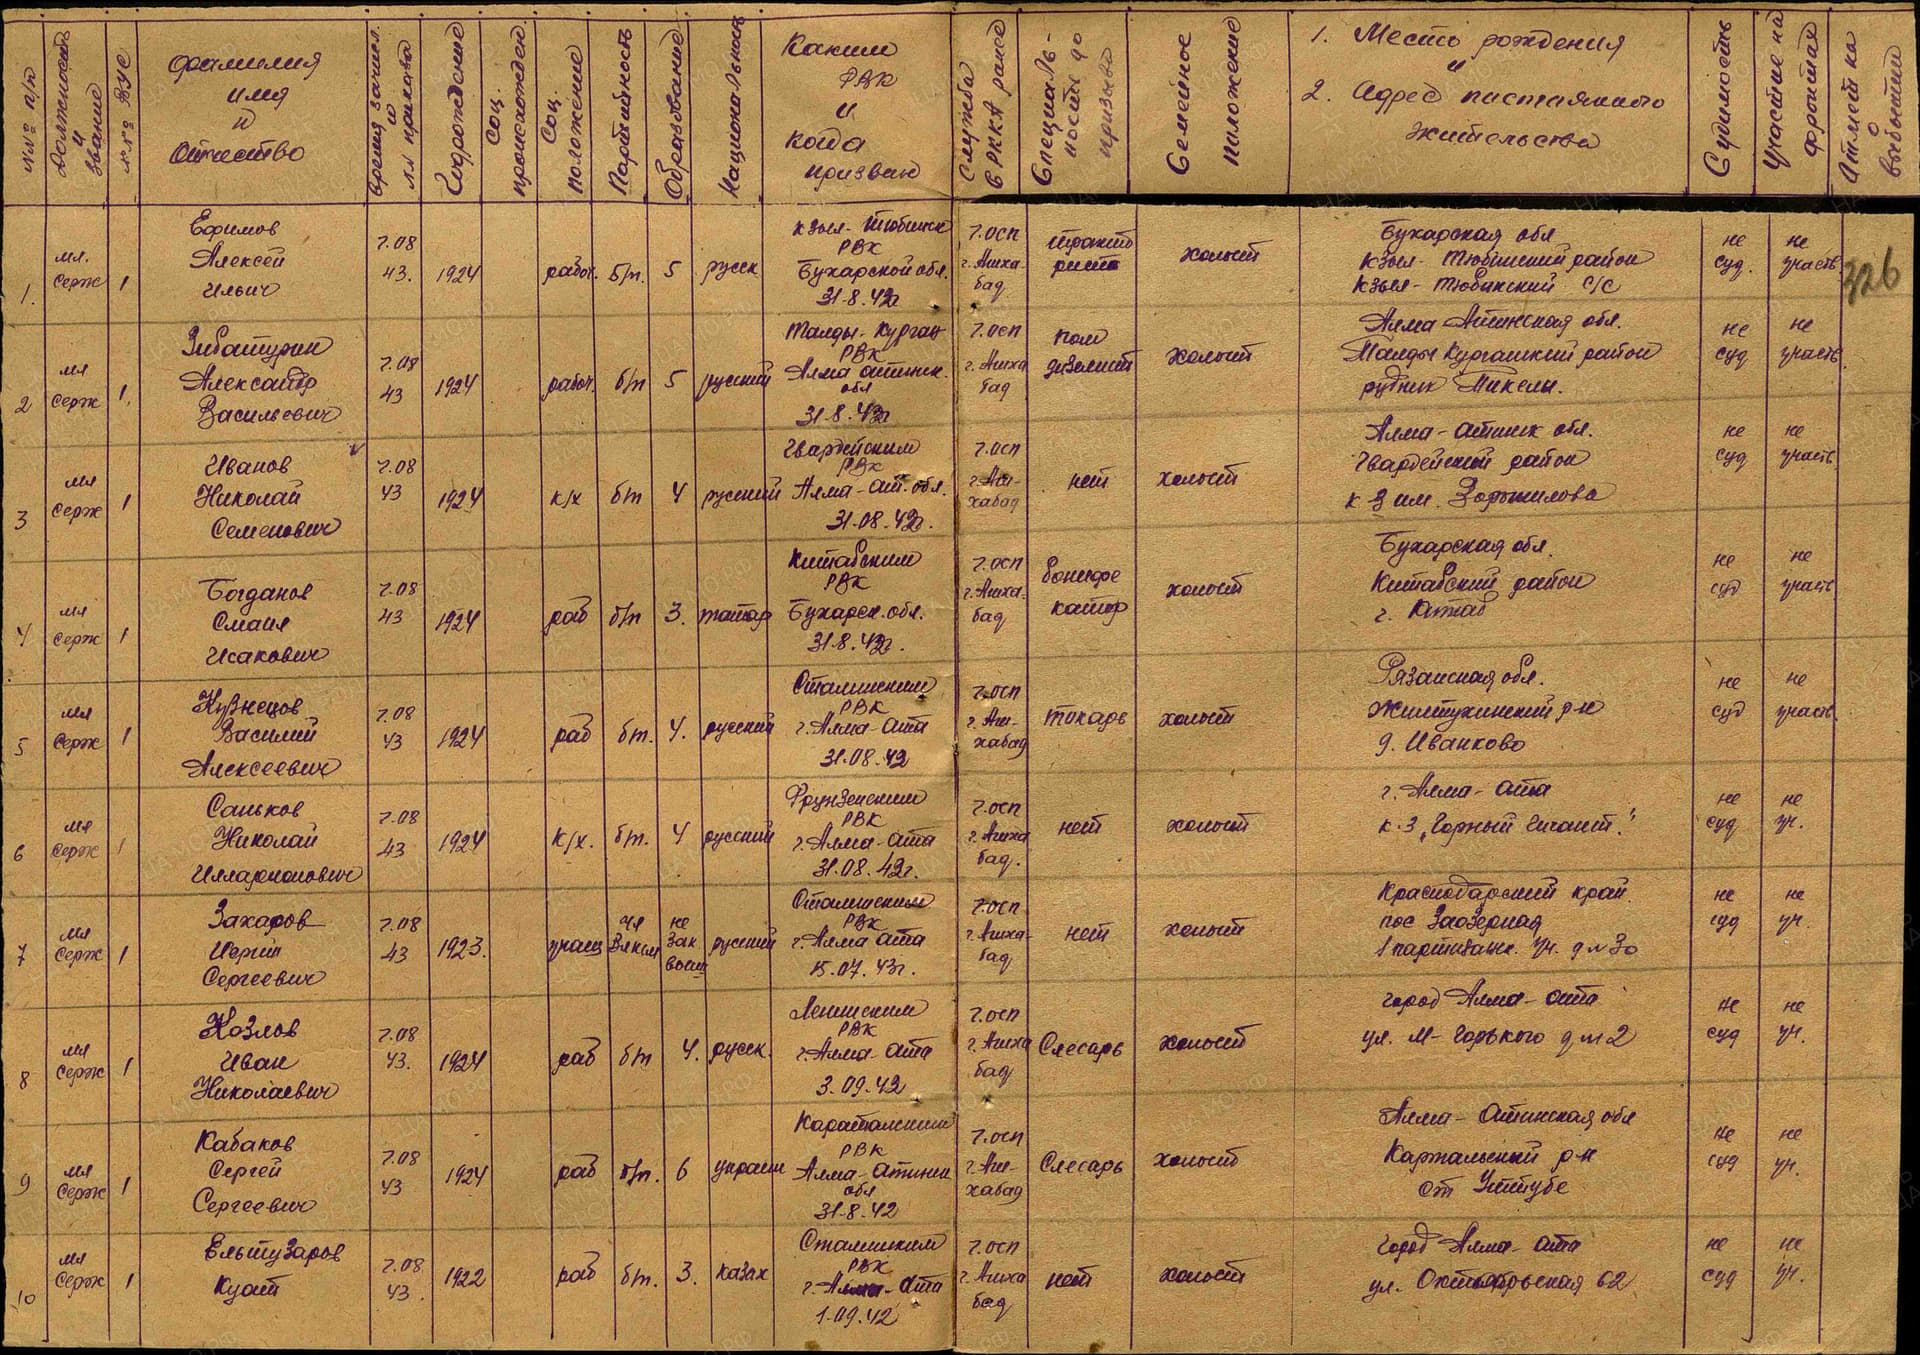 №№ п/п
Должность и звание
№№ ВУС
Фамилия имя и Отчество
время зачисл. и № приказа
Год рождение
Соц. происхожден.
Соц. положение
Партийность
Образование
Национальность
Каким РВК и когда призван
Служба в РККА ранее
Специальность до призыва
Семейное положение
1. Место рождения и
2. Адрес постоянного жительства
Судимость
Участие на фронтах
Отметка о выбытии
326
1. мл. серж 1 Ефимов Алексей Ильич 7.08 43. 1924 рабоч. б/п. 5 русск Кзыл-Тюбинск РВК Бухарской обл. 31-8.42г 7.осп г. Ашхабад холост Бухарская обл Кзыл-Тюбинский район Кзыл-Тюбинский с/с не суд. не участв
2 мл серж 1. Александр Васильевич 7.08 43 1924 рабоч. б/п 5 русский Талды-Курган РВК Алма атинск. обл 31-8.42г 7.осп г. Ашхабад пом дизелист холост Алма-Атинская обл. Талды Курганский район рудник Текели. не суд не участв
3 мл серж 1 Иванов Николай Семенович 7.08 43 1924 к/х б/п 4 русский Гвардейским РВК Алма-ат. обл. 31-08.42г. 7.осп г. Ашхабад нет холост Алма-атинск обл. Гвардейский район к-з им. Ворошилова не суд не участв
4 мл серж 1 Богданов Смаил Исакович 7.08 43 1924 раб б/п 3. татар Китабским РВК Бухарск. обл. 31-8.42г. 7.осп г. Ашхабад холост Бухарская обл. Китабский район г. Китаб не суд не участв
5 мл серж 1 Кузнецов Василий Алексеевич 7.08 43 1924 раб б/п. 4. русский Сталинским РВК г. Алма-Ата 31.08.42 7.осп г. Ашхабад токарь холост Рязанская обл. р-н д. Иванково не суд не участв.
6 мл серж 1 Саньков Николай Илларионович 7.08 43 1924 к/х. б/п. 4 русский Фрунзенским РВК г. Алма-Ата 31.08.42г. 7.осп г. Ашхабад. нет холост г. Алма-Ата к-з „Горный Гигант." не суд не уч.
7 мл серж 1 Захаров Сергей Сергеевич 7.08 43 1923. учащ чл влксм не зак высш русский Сталинским РВК г. Алма Ата 15.07.43г. 7.осп г. Ашхабад нет холост Краснодарский край. пос Заозерная 1 партизанск. ул. д № 30 не суд не уч.
8 мл серж 1 Козлов Иван Николаевич 7.08 43. 1924 раб б/п 4. русск. Ленинским РВК г. Алма-Ата 3.09.42 7.осп г. Ашхабад Слесарь холост город Алма-Ата ул. М-Горького д № 2 не суд не уч.
9 мл серж 1 Кабаков Сергей Сергеевич 7.08 43 1924 раб б/п. 6 украин Каратальским РВК Алма-Атинск обл 31-8.42 7.осп г. Ашхабад Слесарь холост Алма-Атинская обл Картальский р-н ст Уштубе не суд не уч.
10 мл серж 1 Ельтузаров Куат 7.08 43. 1922 раб б/п. 3. казах Сталинским РВК г. Алма-Ата 1.09.42 7.осп г. Ашхабад нет холост город Алма-Ата ул. Октябрьская 62 не суд не уч.